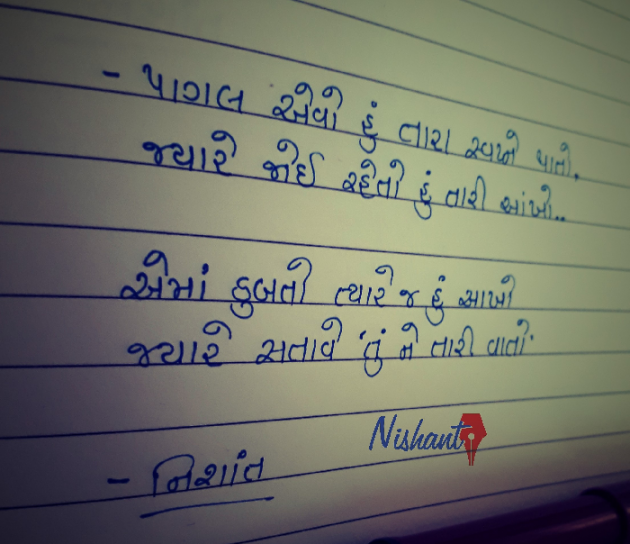 - પાગલ એવો હું તારા સ્વપ્ને થાતો.
જ્યારે જોઈ રહેતો હું તારી આંખો..
એમાં ડુબતો ત્યારે જ હું આખો
જ્યારે સતાવે 'તું ને તારી વાતો'
Nishant
- નિશાંત